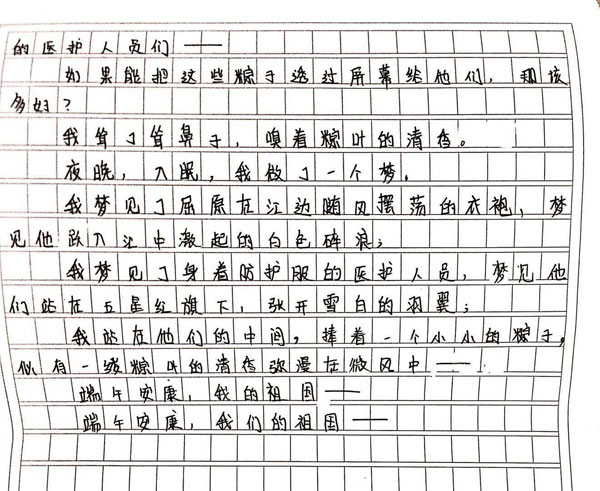 的医护人员们——
如果能把这些粽子透过屏幕给他们，那该
多好？
我耸了耸鼻子，嗅着粽叶的清香。
夜晚，入眠，我做了一个梦。
我梦见了屈原在江边随风摆荡的衣袍，梦
见他跃入江中激起的白色碎浪；
我梦见了身着防护服的医护人员，梦见他
们站在五星红旗下，张开雪白的羽翼；
我站在他们的中间，捧着一个小小的粽子，
似有一缕粽叶的清香弥漫在微风中——
端午安康，我的祖国——
端午安康，我们的祖国——